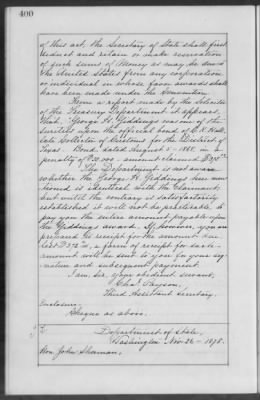 400
of this act, the Secretary of State shall first
deduct and retain or make reservation
of such sums of Money as may be due
the United States from any corporation
or individual in whose favor awards shall
have been made under the Convention.
From a report made by the Solicitor
of the Treasury Department it appears
that "George H. Giddings was one of the
sureties upon the official bond of
late Collector of Customs for the District of
Texas - Bond dated August
penalty of amount claimed
The Department is not aware
whether the George H. Giddings here men-
tioned is identical with the Claimant;
but until the contrary is satisfactorily
established it will not be practicable to
pay you the entire amount payable upon
the Giddings award. If, however, you are
prepared to receipt for the amount due
less a form of receipt for such
amount will be sent to you for your sig-
nature and subsequent payment.
I am Sir, your obedient servant,
Chas. Payson,
Third Assistant Secretary.
Enclosure:
as above.
Department of State,
Washington Nov. 26 - 1878.
Hon. John Sherman,